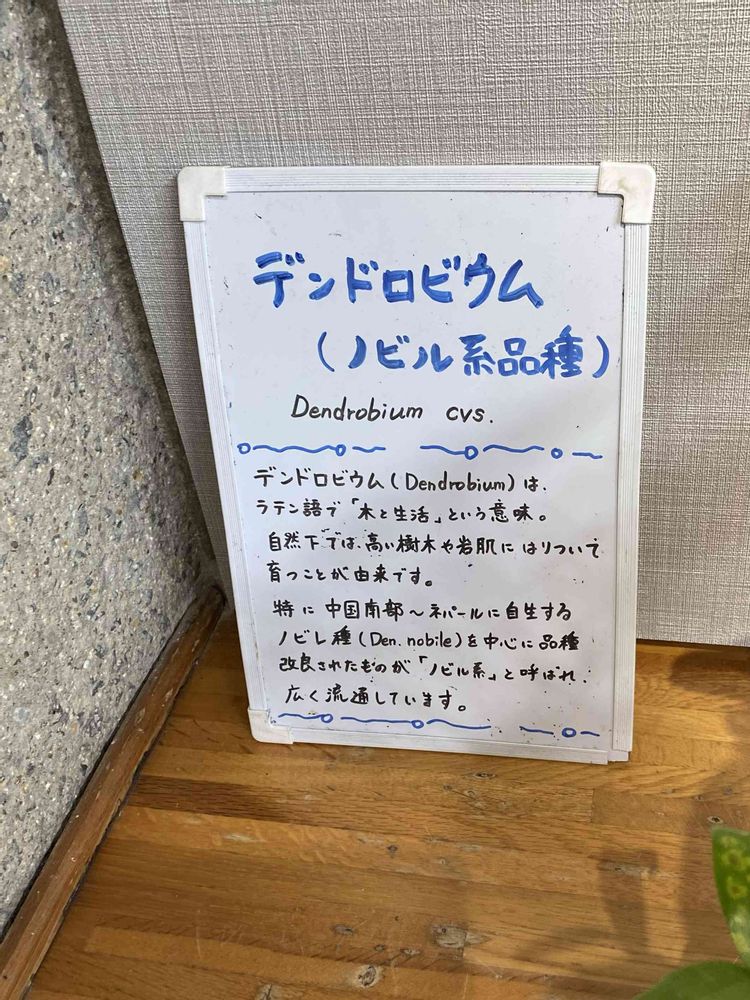 デンドロビウム
(ノビル系品種)
Dendrobium cvs.
デンドロビウム(Dendrobium)は、
ラテン語で「木と生活」という意味。
自然下では、高い樹木や岩肌にはりついて
育つことが由来です。
特に中国南部～ネパールに自生する
ノビレ種(Den. nobile)を中心に品種
改良されたものが「ノビル系」と呼ばれ、
広く流通しています。